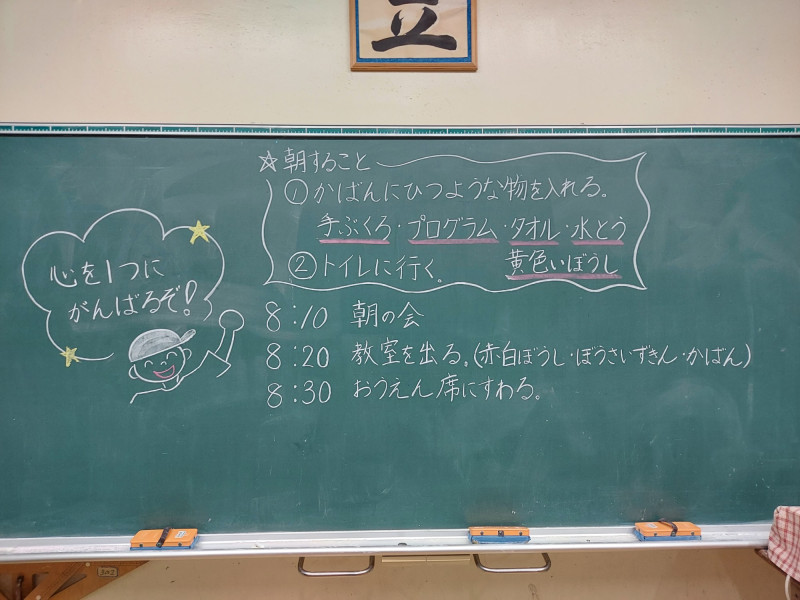 立
☆朝すること
①かばんにひつような物を入れる。
手ぶくろ・プログラム・タオル・水とう
②トイレに行く。 黄色いぼうし
心を1つに
がんばるぞ!
8:10 朝の会
8:20 教室を出る。(赤白ぼうし・ぼうさいずきん・かばん)
8:30 おうえん席にすわる。